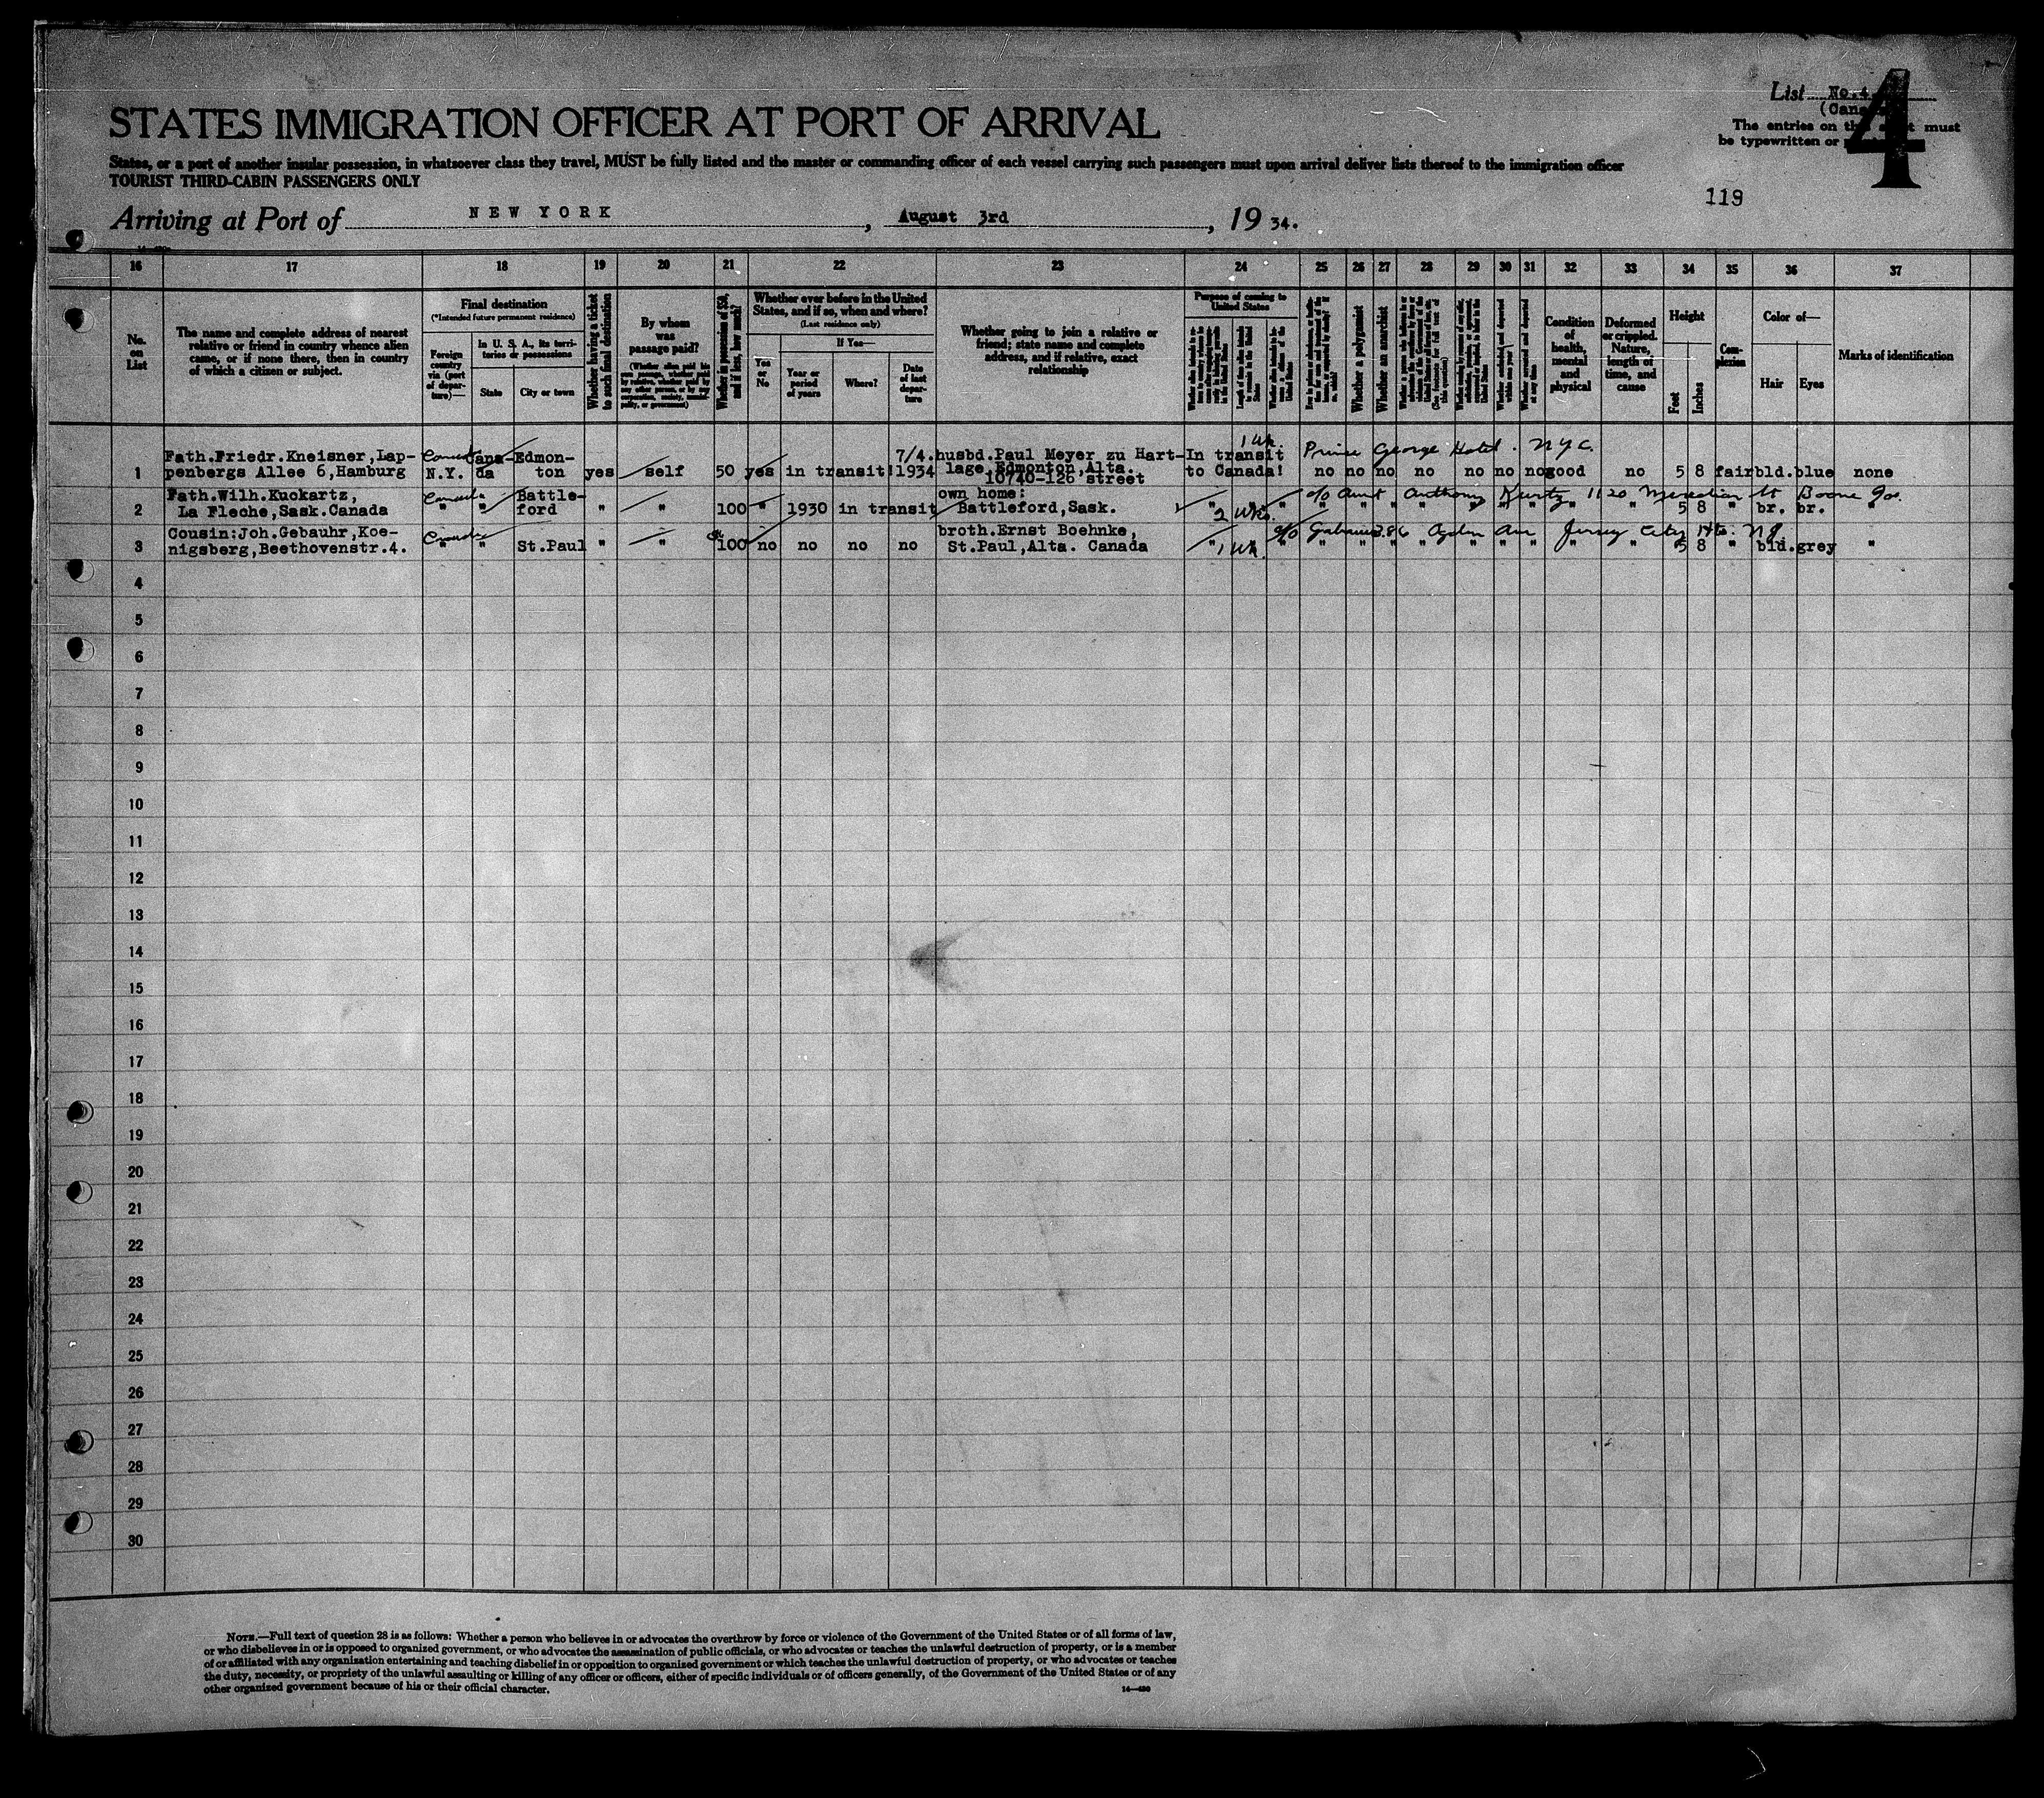 List No. 4
4
STATES IMMIGRATION OFFICER AT PORT OF ARRIVAL
The entries on must
be typewritten or
States, or a port of another insular possession, in whatsoever class they travel, MUST be fully listed and the master or commanding officer of each vessel carrying such passengers must upon arrival deliver lists thereof to the immigration officer
TOURIST THIRD-CABIN PASSENGERS ONLY
119
Arriving at Port of NEW YORK, August 3rd, 19 34.
16 17 18 19 20 21 22 23 24 25 26 27 28 29 30 31 32 33 34 35 36 37
No. on List
The name and complete address of nearest
relative or friend in country whence alien
came, or if none there, then in country
of which a citizen or subject.
Final destination
(*Intended future permanent residence)
Foreign country via (port of departure)—
In U. S. A., its territories or possessions
State
City or town
Whether having a ticket to such final destination
By whom was passage paid?
Whether in possession of $50, and if less, how much?
Whether ever before in the United
States, and if so, when and where?
(Last residence only)
Yes or No
If Yes—
Year or period of years
Where?
Date of last departure
Whether going to join a relative or
friend; state name and complete
address, and if relative, exact
relationship
Purpose of coming to
United States
Whether a polygamist
Whether an anarchist
Condition of health, mental and physical
Deformed or crippled. Nature, length of time, and cause
Height
Feet
Inches
Complexion
Color of—
Hair
Eyes
Marks of identification
1 wk. Prince George Hotel. NYC.
1 Fath.Friedr.Kneisner,Lap-
penbergs Allee 6,Hamburg N.Y. Cana-da Edmon-ton yes self 50 yes in transit! 7/4. 1934 husbd.Paul Meyer zu Hart-
lage,Edmonton,Alta.
10740-126 street
In transit
to Canada! no no no no no no no good no 5 8 fair bld. blue none
c/o Aunt Anthony Kurtz 1120 St Boone
2 Fath.Wilh.Kuckartz,
La Fleche,Sask.Canada " " Battle-ford " " 100 " 1930 in transit own home:
Battleford,Sask. " 2 wks. " " " " " " " " " " 5 8 " br. br. "
c/o 286 Ogden Ave Jersey City Hts. NJ
3 Cousin:Joh.Gebauhr,Koe-
nigsberg,Beethovenstr.4. " " St.Paul " " 100 no no no no broth.Ernst Boehnke,
St.Paul,Alta. Canada " 1 wk. " " " " " " " " " 5 8 " bld. grey "
4
5
6
7
8
9
10
11
12
13
14
15
16
17
18
19
20
21
22
23
24
25
26
27
28
29
30
NOTE.—Full text of question 28 is as follows: Whether a person who believes in or advocates the overthrow by force or violence of the Government of the United States or of all forms of law,
or who disbelieves in or is opposed to organized government, or who advocates the assassination of public officials, or who advocates or teaches the unlawful destruction of property, or is a member
of or affiliated with any organization entertaining and teaching disbelief in or opposition to organized government or which teaches the unlawful destruction of property, or who advocates or teaches
the duty, necessity, or propriety of the unlawful assaulting or killing of any officer or officers, either of specific individuals or of officers generally, of the Government of the United States or of any
other organized government because of his or their official character.